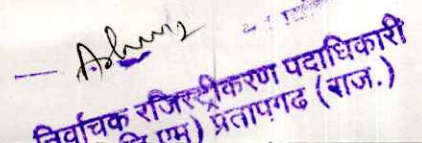 निर्वाचक रजिस्ट्रीकरण पदाधिकारी
एम) प्रतापगढ (राज.)